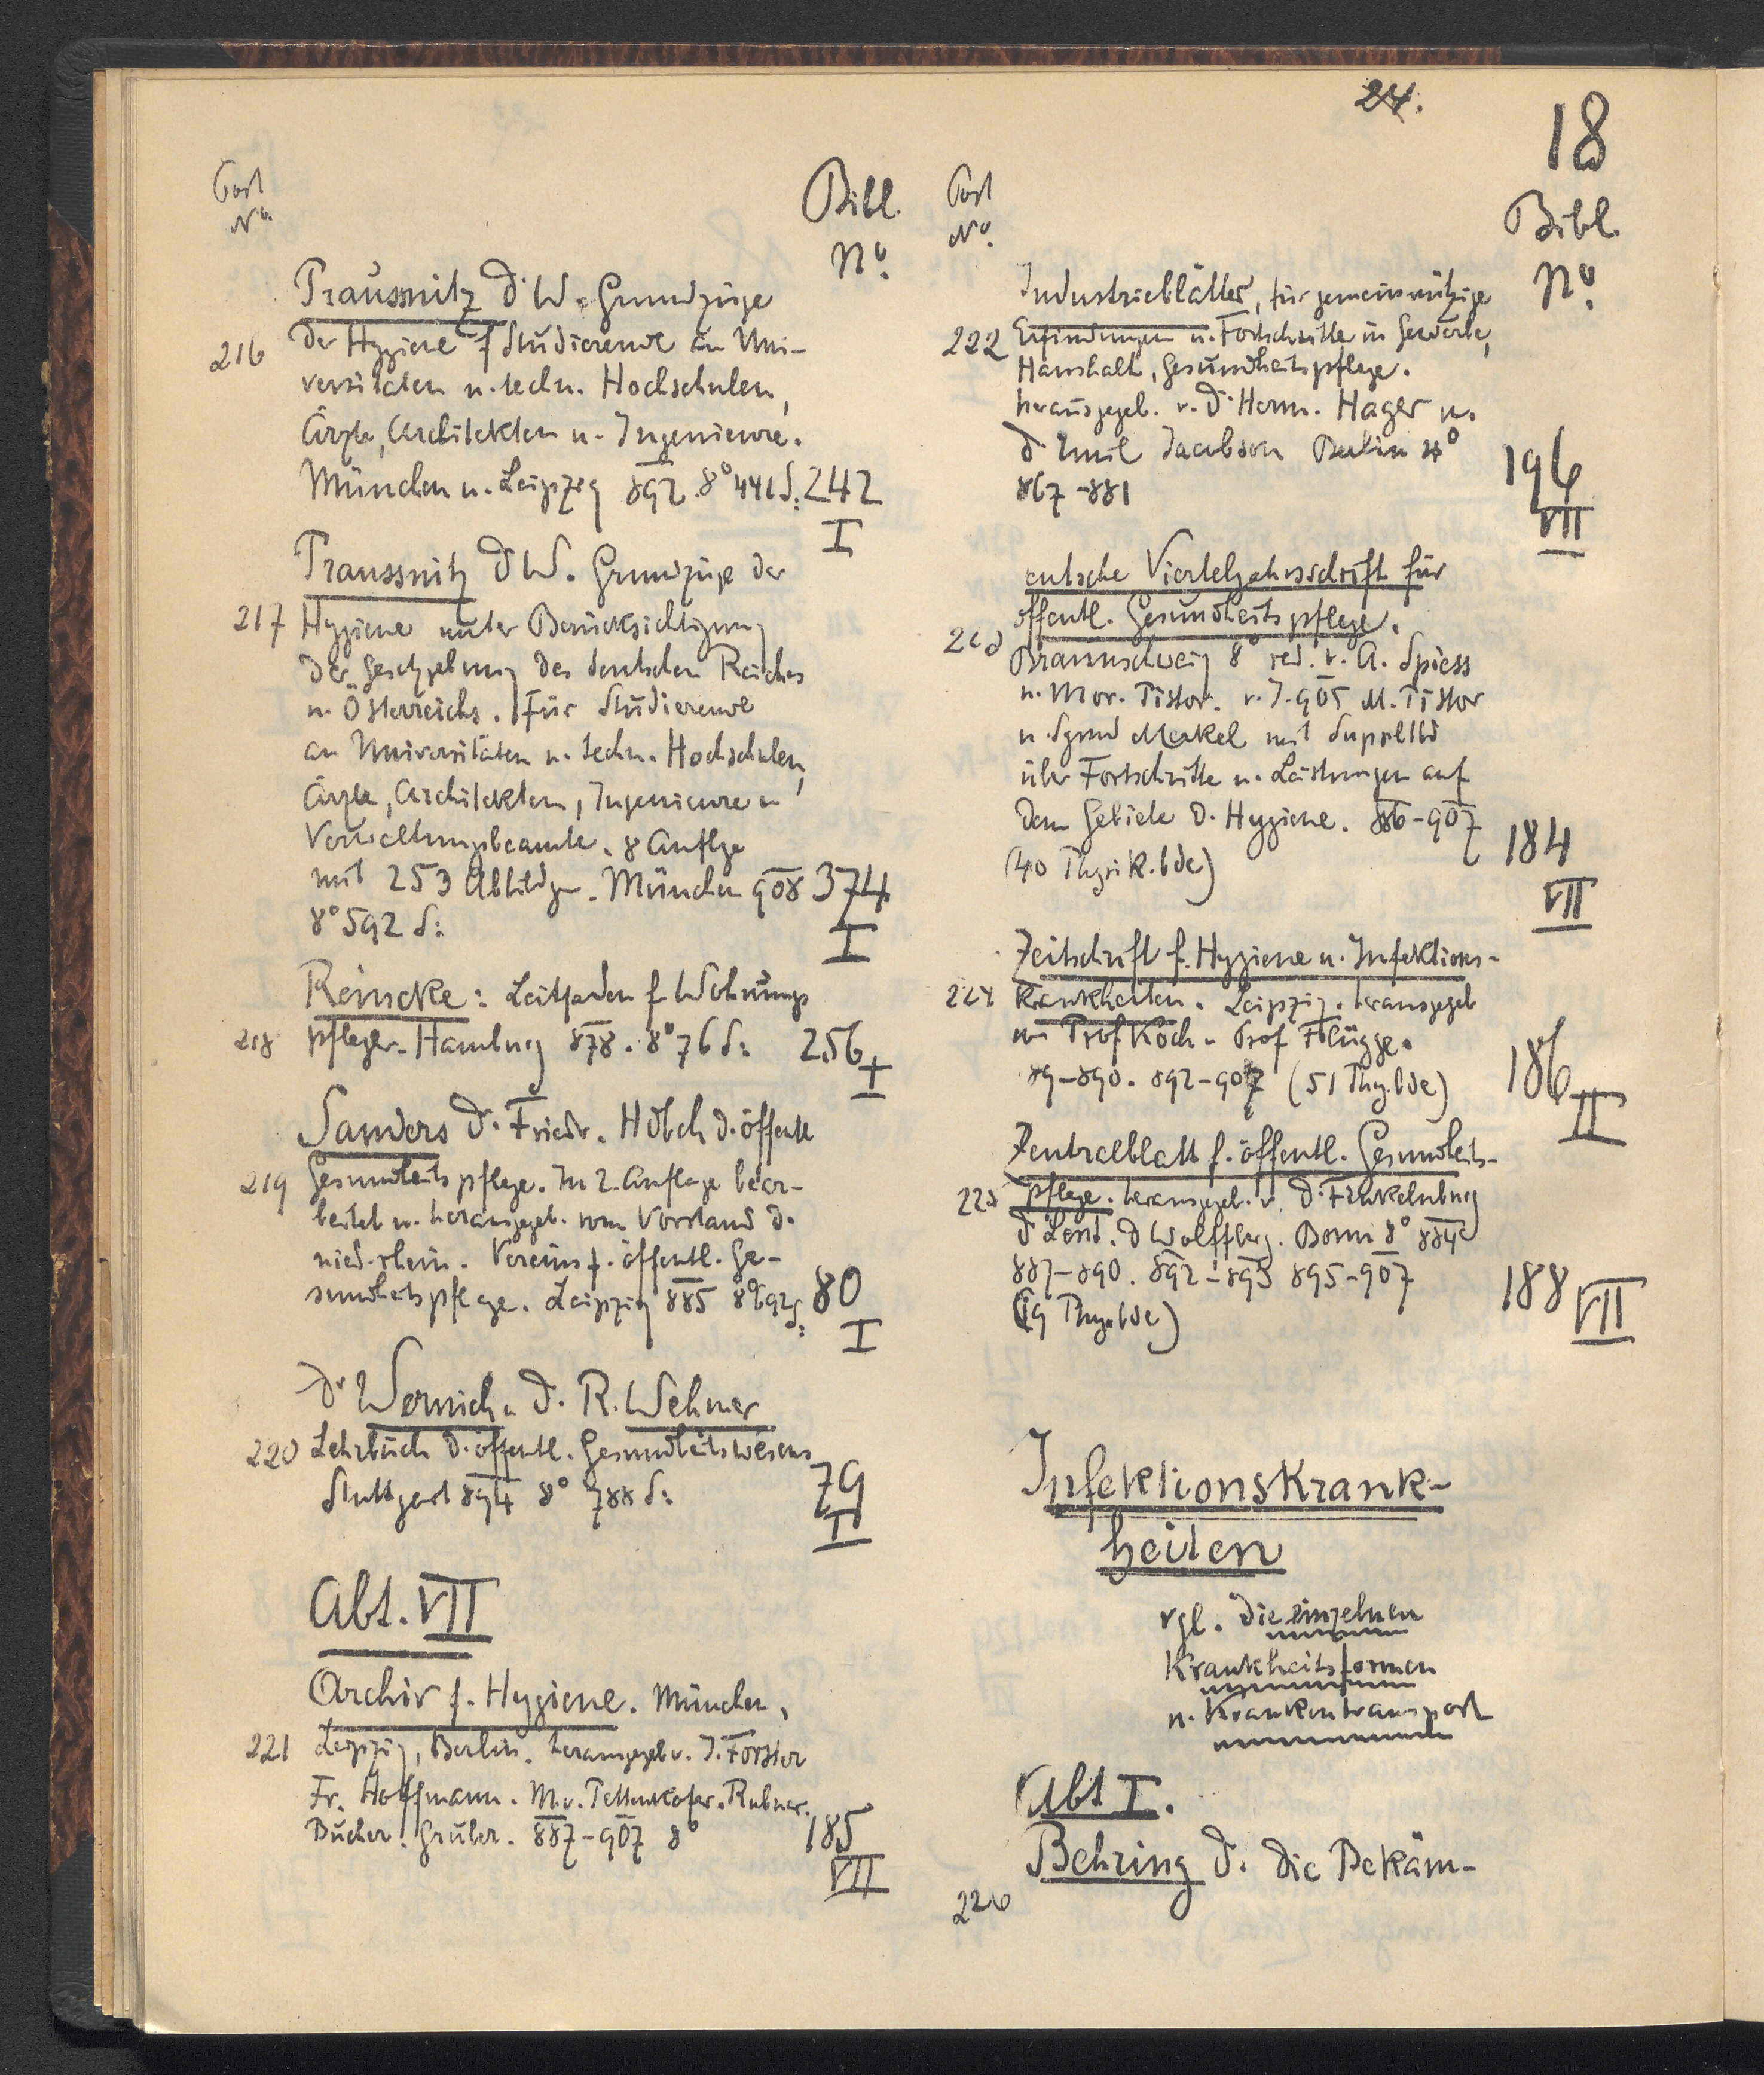 24.
18
Post
No.
Bibl.
No.
Praussnitz Dr W. Grundzüge
216 der Hygiene f Studierende an Uni-
versitäten u. techn. Hochschulen,
Ärzte, Architekten u. Ingenieure.
München u. Leipzig 892. 8° 441 S: 242
I
Praussnitz Dr W. Grundzüge der
217 Hygiene unter Berücksichtigung
der Gesetzgebung des deutschen Reiches
u. Österreichs. Für Studierende
an Universitäten u. techn. Hochschulen,
Ärzte, Architekten, Ingenieure u
Verwaltungsbeamte. 8 Auflge
mit 253 Abbildgn. München 908 374
8° 592 S:
I
Reincke: Leitfaden f Wohnungs
218 pfleger. Hamburg 878. 8° 76 S: 256
I
Sanders Dr. Friedr. Hdbch d. öffentl
219 Gesundheitspflege. In 2. Auflage bear-
beitet u. herausgegeb. vom Vorstand d.
nied. rhein. Vereins f. öffentl. Ge-
sundheitspflege. Leipzig 885 8° 692 S: 80
I
Dr Wernich u Dr. R. Wehmer
220 Lehrbuch d. öffentl. Gesundheitswesens
Stuttgart 894 8° 788 S: 79
I
Abt. VII
Archiv f. Hygiene. München,
221 Leipzig, Berlin. herausgegeb v. J. Forster
Fr. Hoffmann. M. v. Pettenkofer. Rubner.
Bucher. Gruber. 887-907 8° 185
VII
Post
No.
Bibl.
No.
Industrieblätter, für gemeinnützige
222 Erfindungen u. Fortschritte in Gewerbe,
Haushalt, Gesundheitspflege.
herausgegeb. v. Dr Herm. Hager u.
Dr Emil Jacobsen Berlin 4°
867-881 196
VII
eutsche Vierteljahrsschrift für
öffentl. Gesundheitspflege.
223 Braunschweig 8° red. v. A. Spiess
u. Mor. Pistor. v. J. 905 M. Pistor
u. Sgmd Merkel mit Supplbd
über Fortschritte u. Leistungen auf
dem Gebiete d. Hygiene. 886-907 184
(40 Physik. bde)
VII
Zeitschrift f. Hygiene u. Infektions-
224 krankheiten. Leipzig. herausgegeb
v. Prof Koch u Prof Flügge.
89-890. 892-907 (51 Phy. bde) 186
II
Zentralblatt f. öffentl. Gesundheits-
225 pflege. herausgegeb. v. Dr. Finkelnburg
Dr Lent. Dr Wolffberg. Bonn 8° 884
887-890. 892-893 895-907 188
(19 Phy. bde)
VII
Infektionskrank-
heiten
vgl. die einzelnen
Krankheitsformen
u. Krankentransport
Abt I.
Behring Dr. Die Bekäm-
226